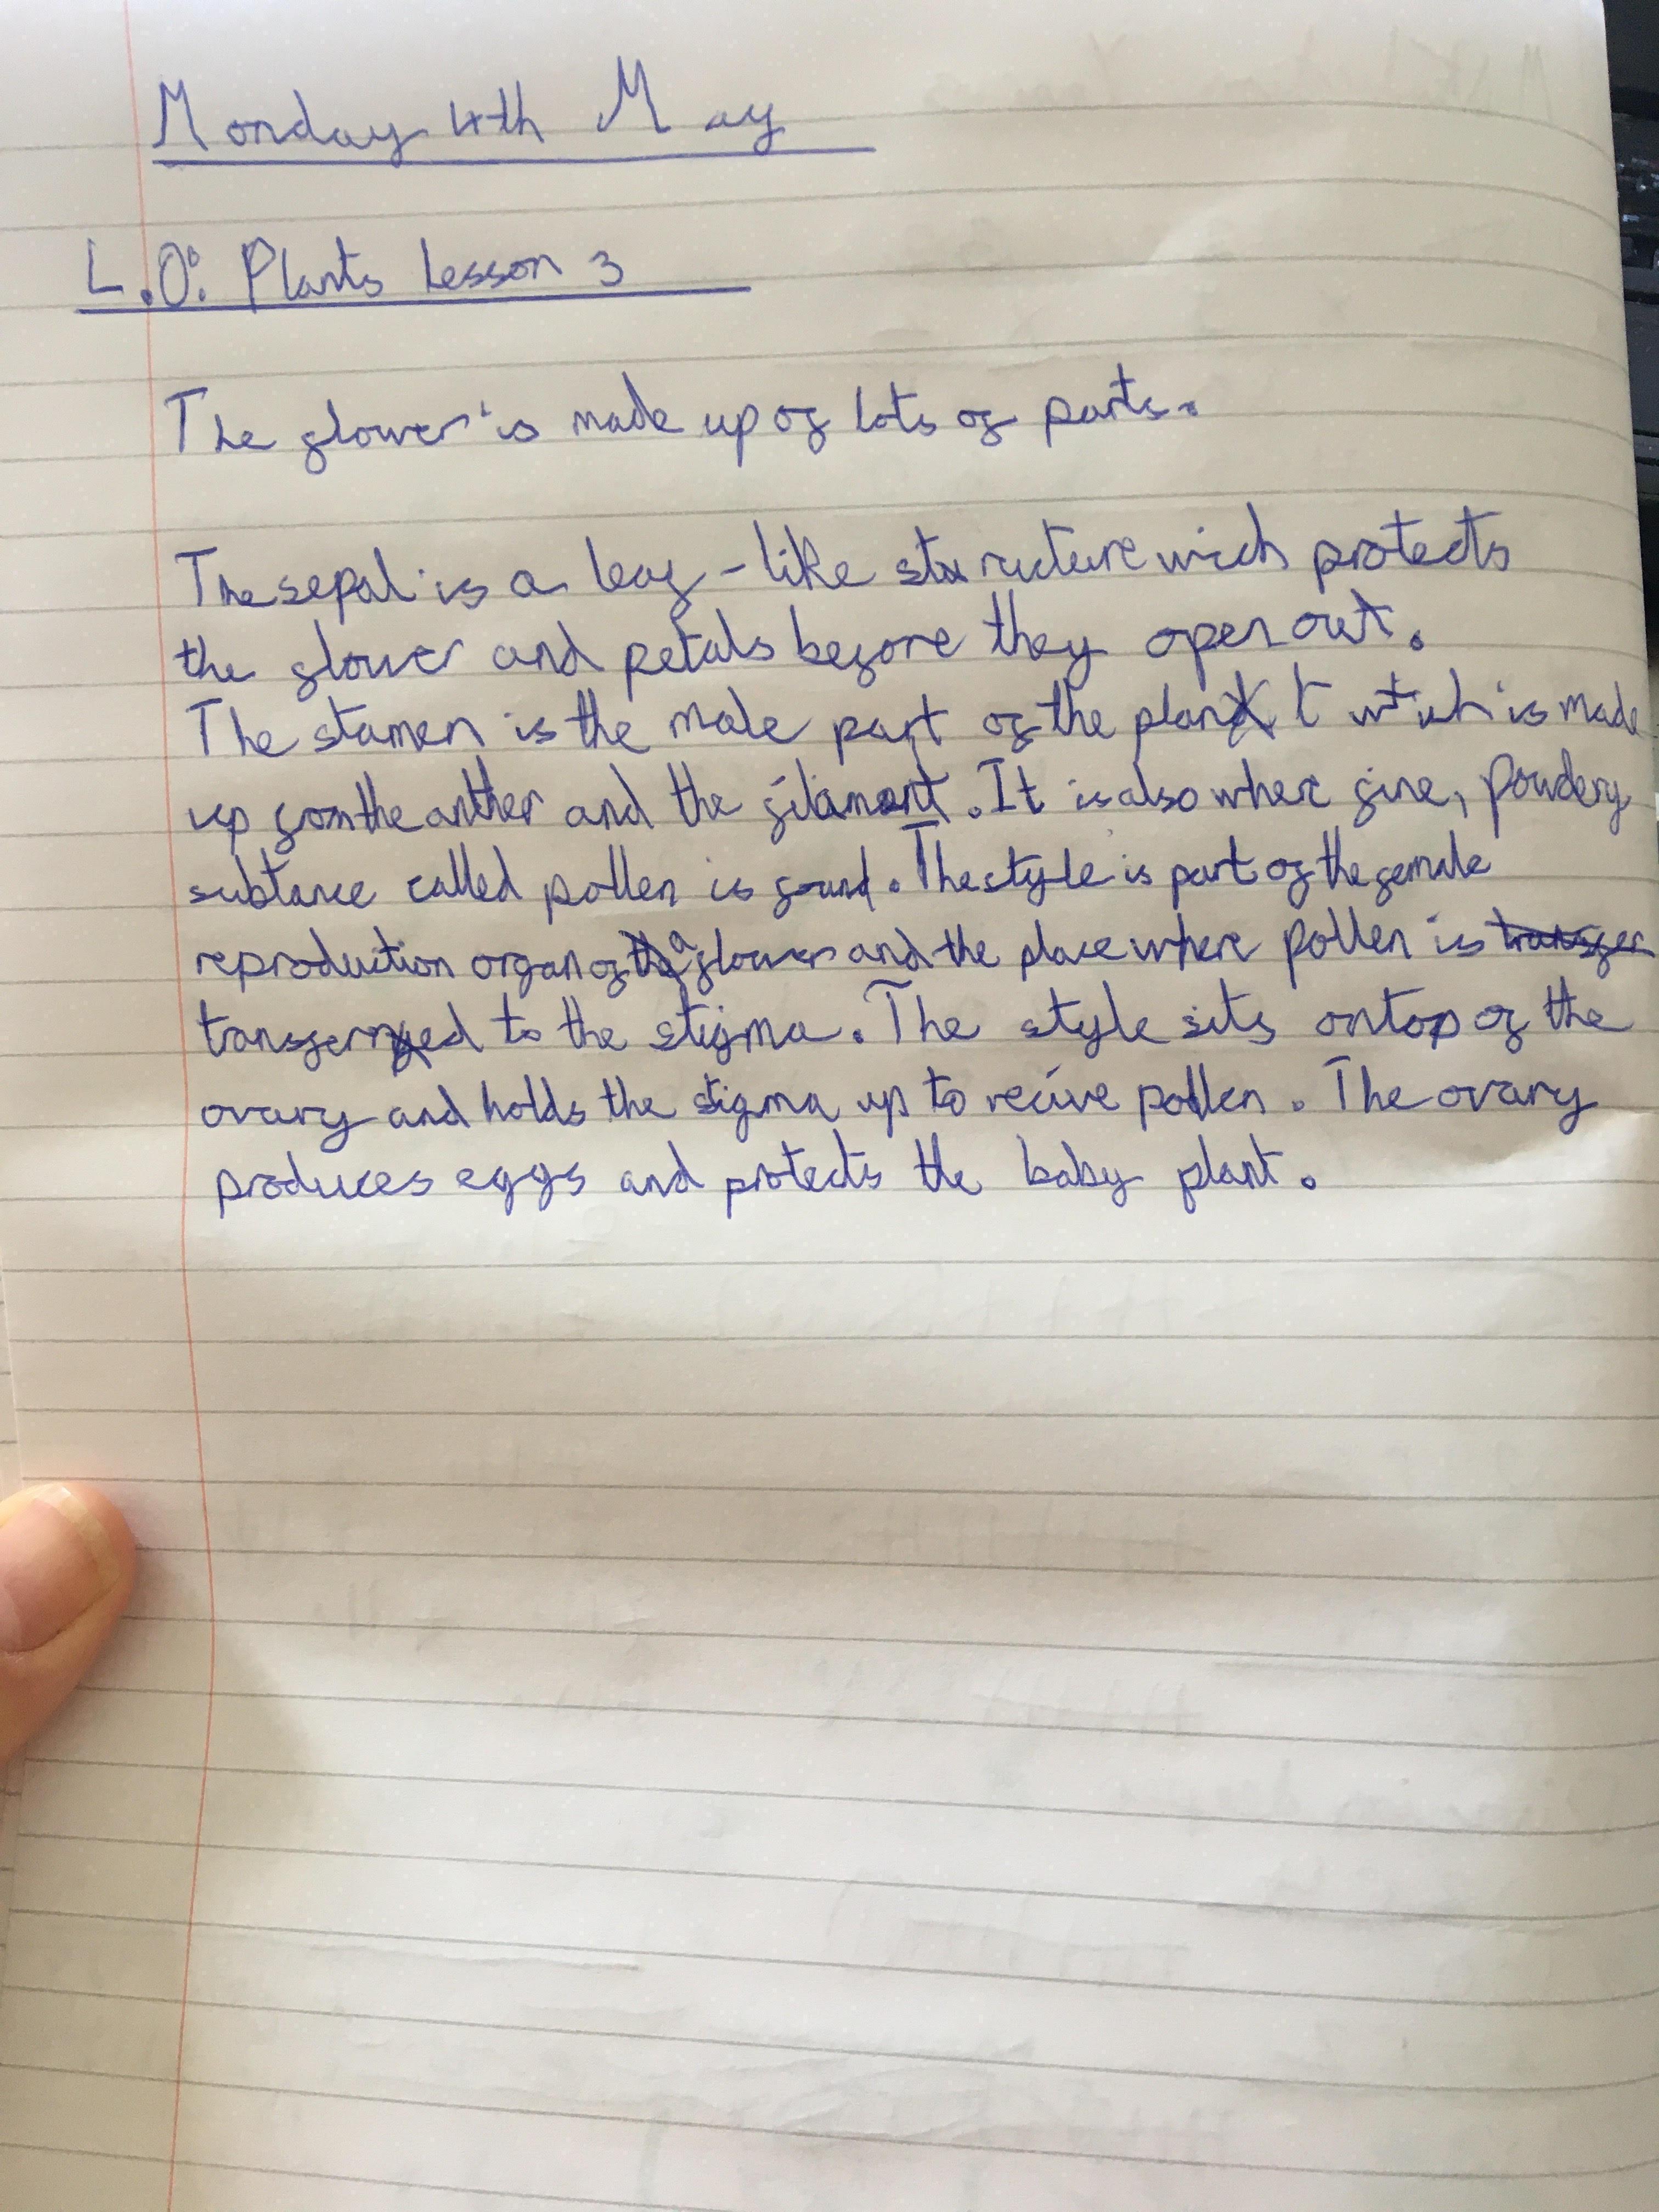 Monday 4th May
L.O: Plants Lesson 3
The flower is made up of lots of parts.
The sepal is a leaf-like structure wich protects
the flower and petals before they open out.
The stamen is the male part of the plant which is made
up fom the anther and the filament. It is also where fine, powdery
subtance called pollen is found. The style is part of the female
reproduction organ of a flower and the place where pollen is transfer
transferred to the stigma. The style sits ontop of the
ovary and holds the stigma up to recive pollen. The ovary
produces eggs and protects the baby plant.